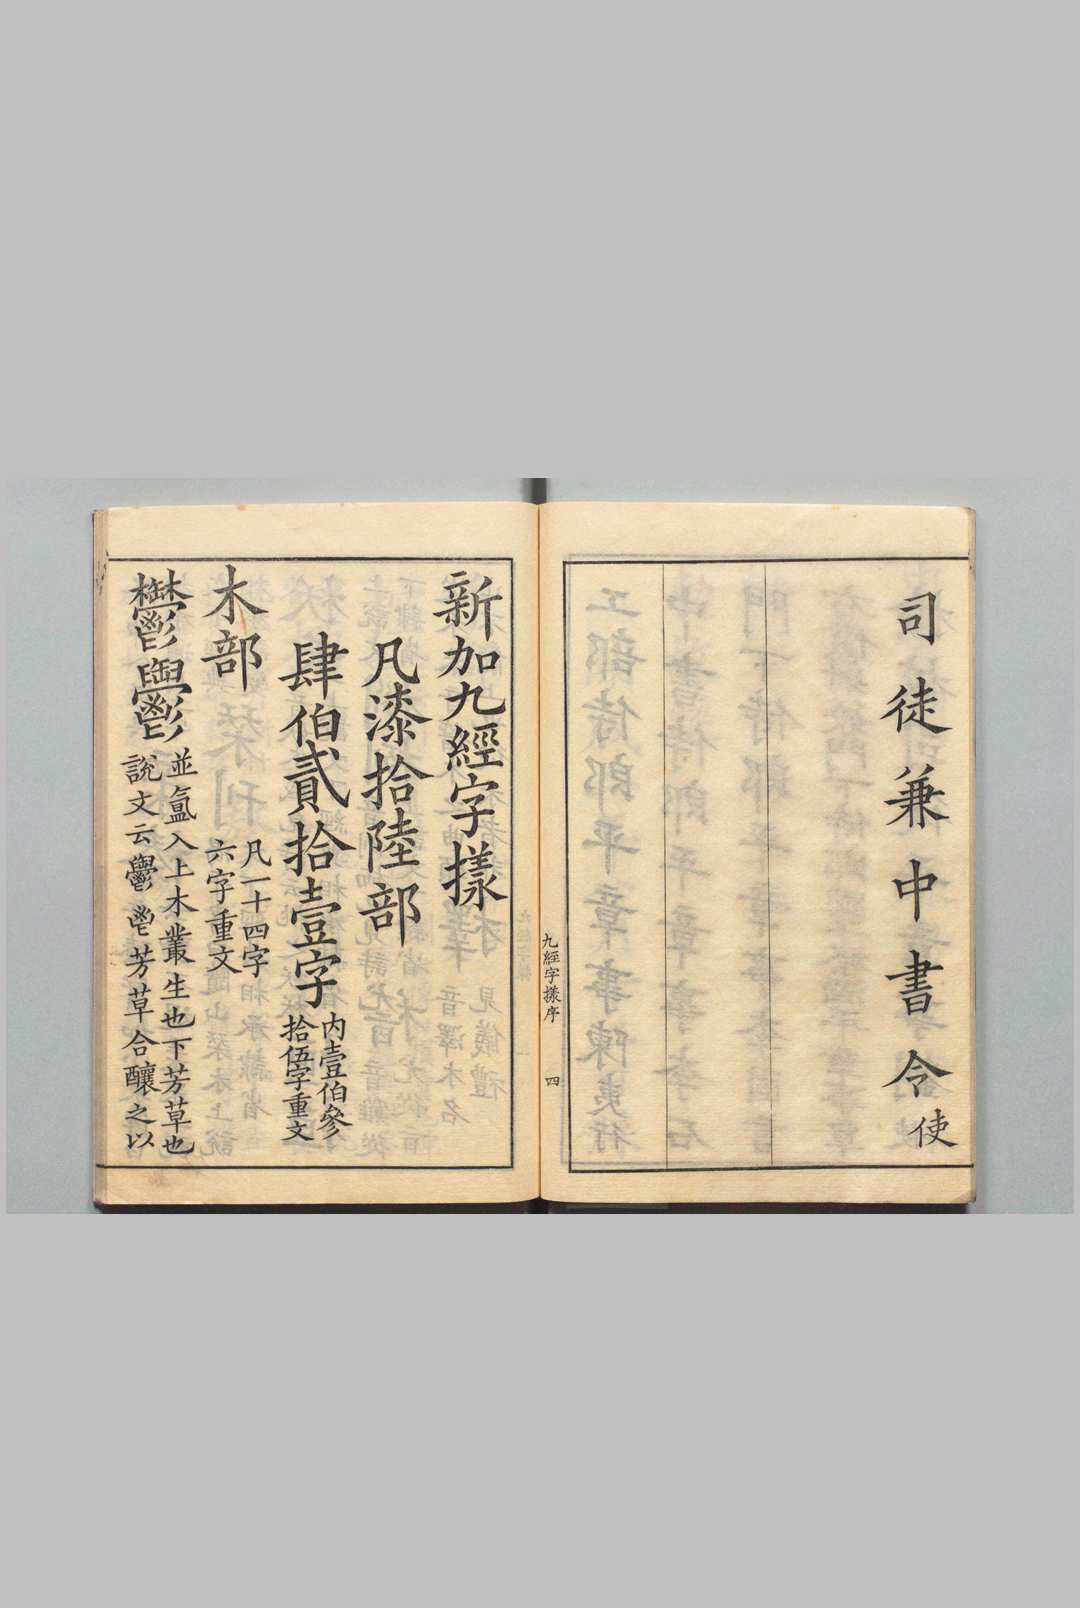 司徒兼中書令使
九經字樣序 四
新加九經字樣
凡漆拾陸部
肆伯貳拾壹字
内壹伯參
拾伍字重文
木部
凡一十四字
六字重文
鬱𩰪
並氳入上木叢生也下芳草也
說文云𩰪鬯芳草合釀之以